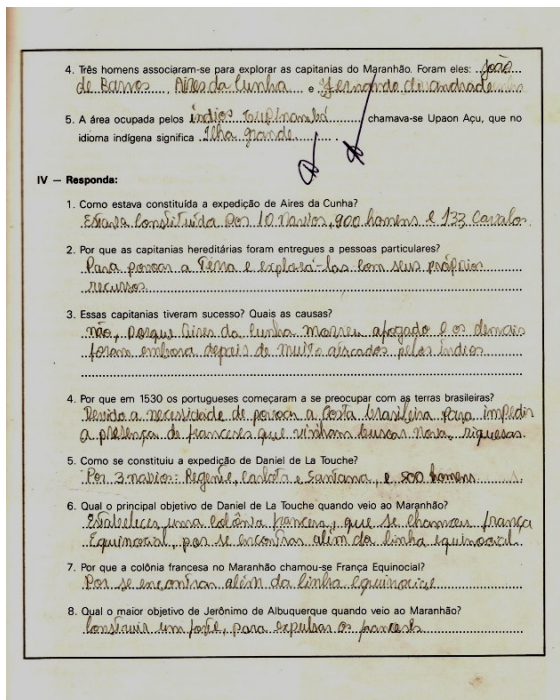 4. Três homens associaram-se para explorar as capitanias do Maranhão. Foram eles: João
de Barros, Aires da Cunha e Fernando de andrade
5. A área ocupada pelos índios Tupinambá chamava-se Upaon Açu, que no
idioma indígena significa Ilha grande
IV — Responda:
1. Como estava constituída a expedição de Aires da Cunha?
Estava Constituída por 10 navios, 900 homens e 133 cavalos.
2. Por que as capitanias hereditárias foram entregues a pessoas particulares?
Para povoar a Terra e explorá-las com seus próprios
recursos
3. Essas capitanias tiveram sucesso? Quais as causas?
não, porque Aires da Cunha morreu afogado e os demais
foram embora depois de muito atacados pelos índios
4. Por que em 1530 os portugueses começaram a se preocupar com as terras brasileiras?
Devido a necessidade de povoar a costa brasileira para impedir
a presença de franceses que vinham buscar nova, riquesas.
5. Como se constituiu a expedição de Daniel de La Touche?
Por 3 navios: Regente, Carlota e Santana, e 500 homens
6. Qual o principal objetivo de Daniel de La Touche quando veio ao Maranhão?
Estabelecer uma colônia francesa, que se chamou frança
Equinocial, por se encontrar além da linha equinocial.
7. Por que a colônia francesa no Maranhão chamou-se França Equinocial?
Por se encontrar além da linha equinocial
8. Qual o maior objetivo de Jerônimo de Albuquerque quando veio ao Maranhão?
Construir um forte, para expulsar os franceses